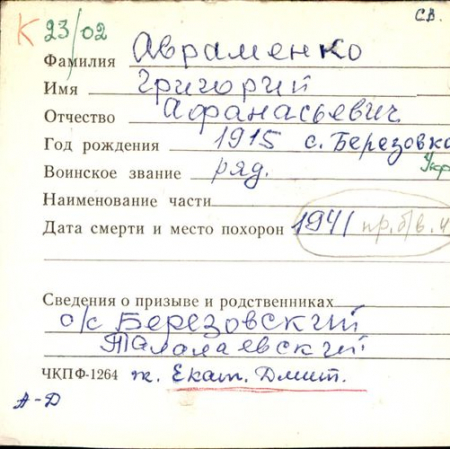 К 23/02 СВ.
Фамилия Авраменко
Имя Григорий
Отчество Афанасьевич
Год рождения 1915 с. Березовка
Воинское звание ряд. Укр
Наименование части
Дата смерти и место похорон 1941 пр. б/в. ч
Сведения о призыве и родственниках
о/с Березовский
Талалаевский
ЧКПФ-1264 ж. Екат. Дмит.
А-Д